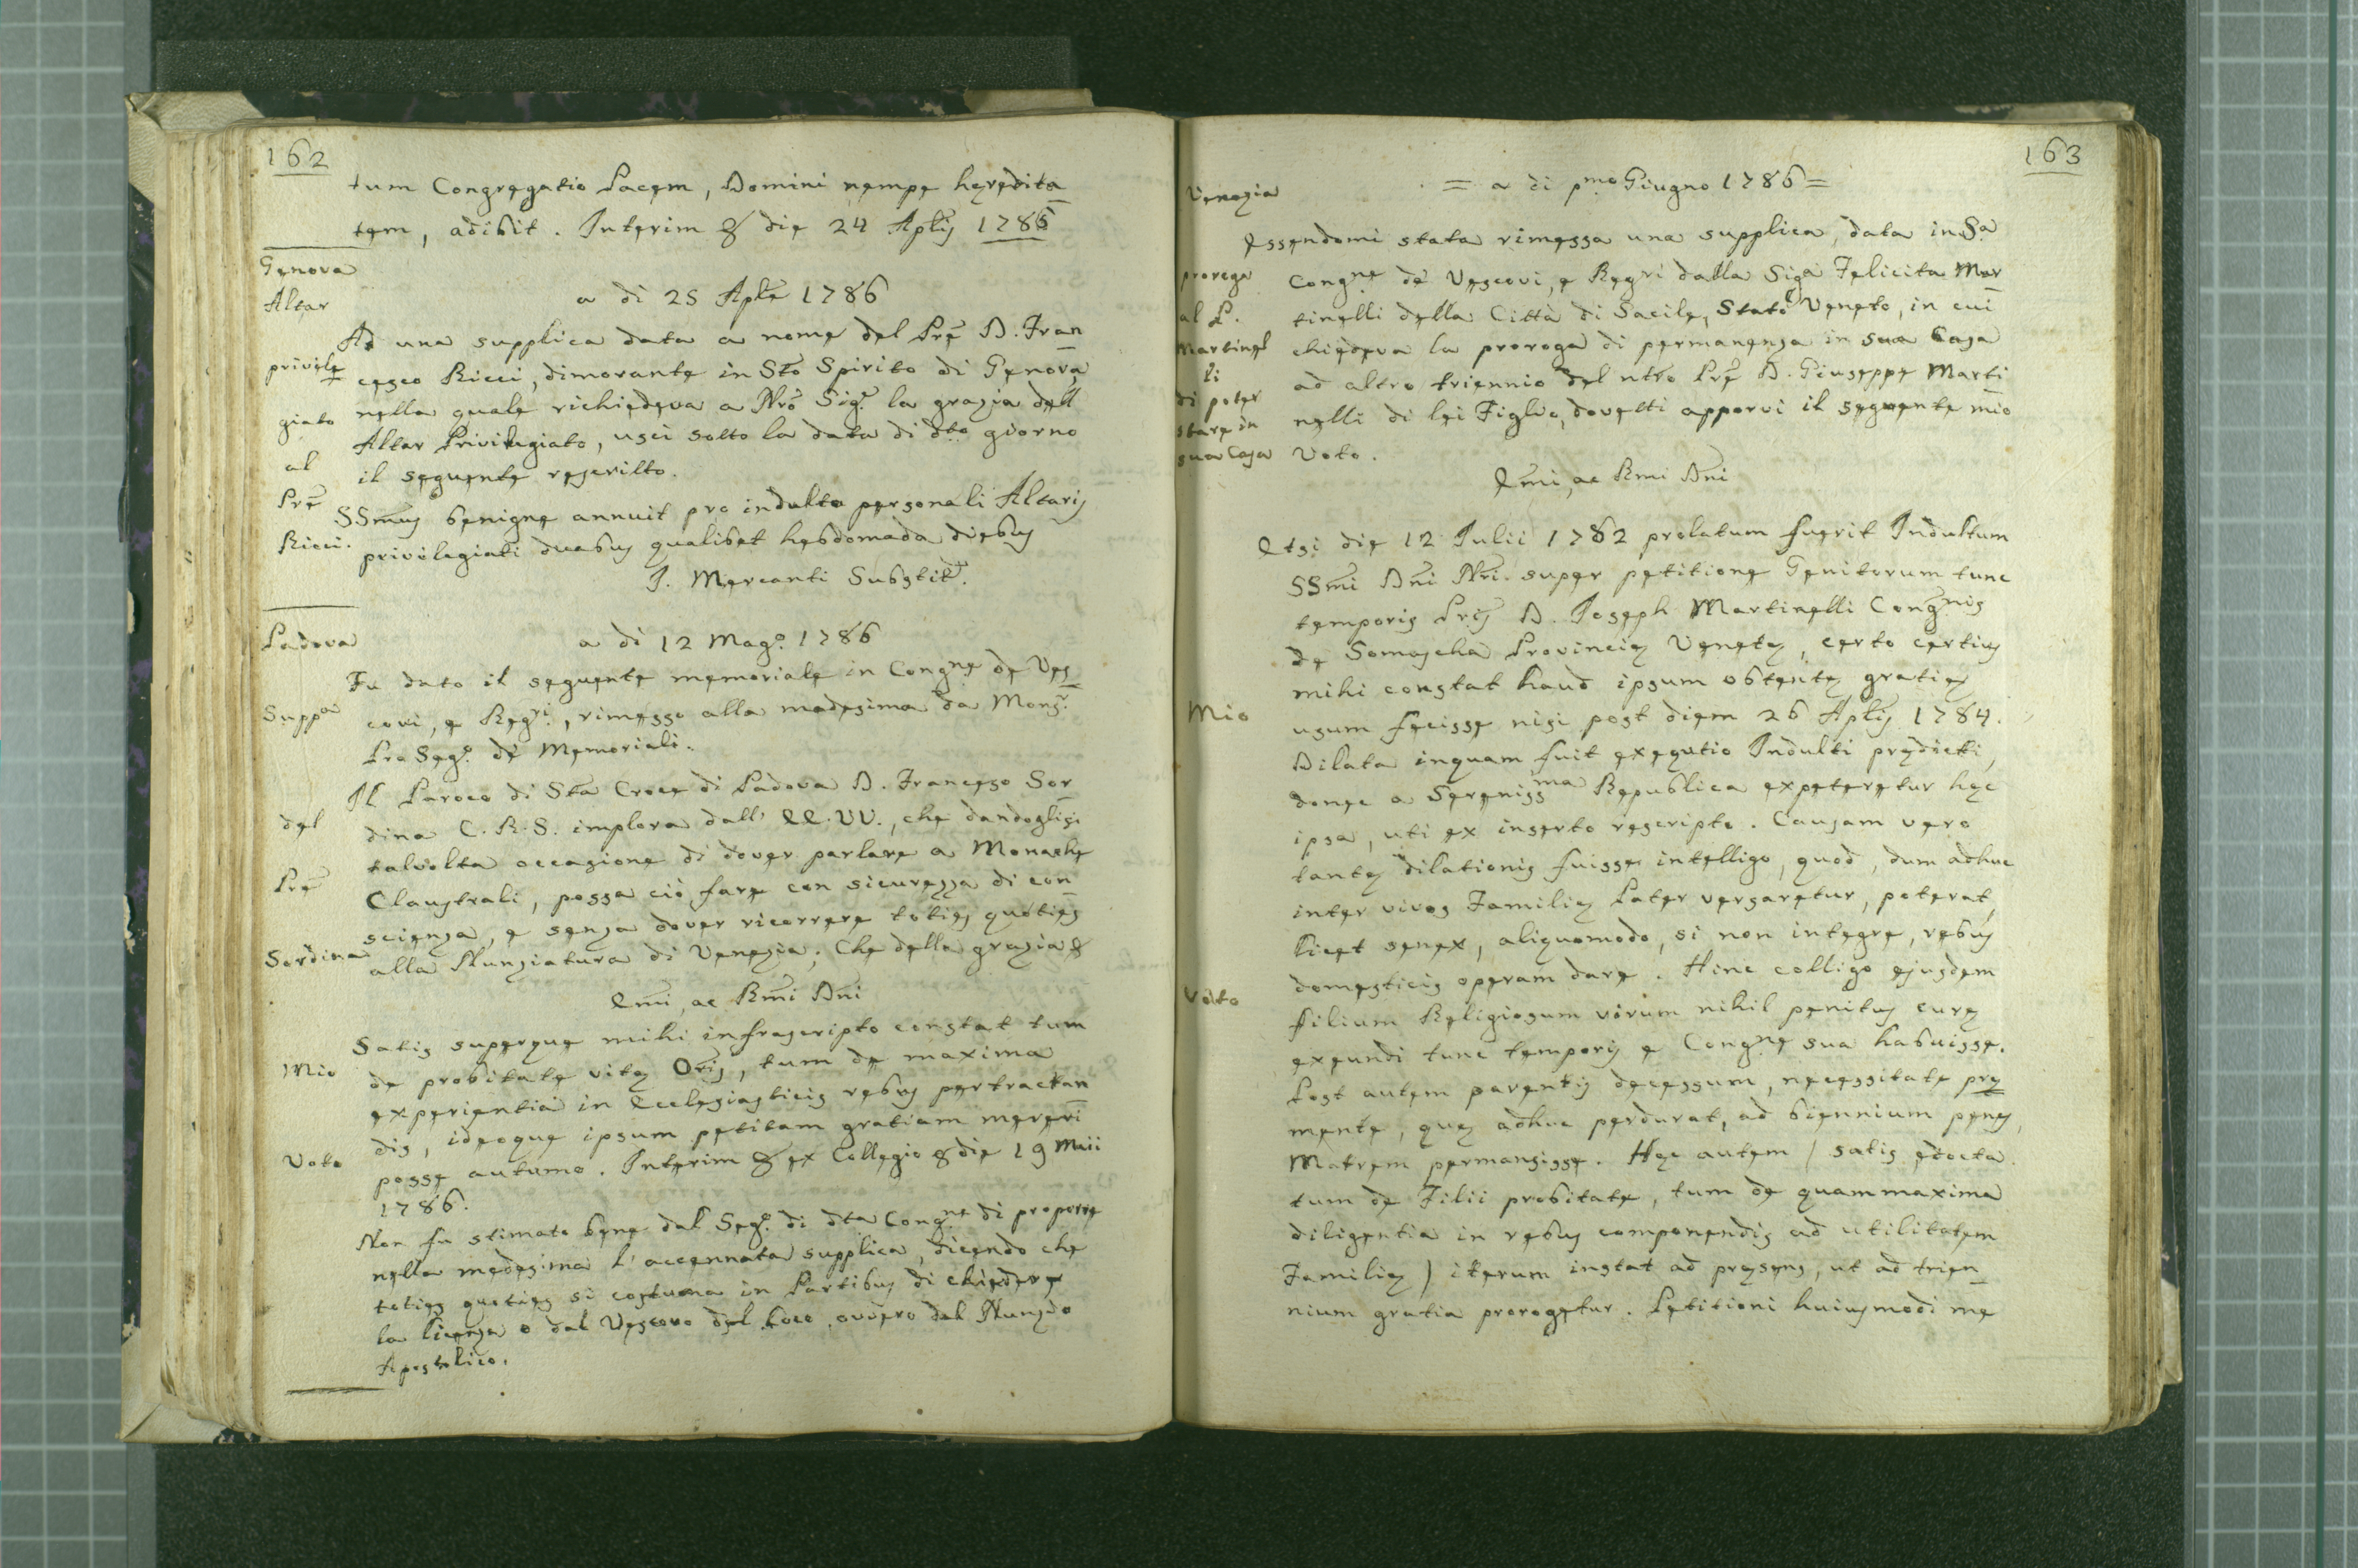 162
tum Congregatio Pacem, Domini nempe heredita
tem, adibit. Interim & die 24 Aplis 1786
Genova
Altar
privile
giato
al
Prē
Ricci.
a di 25 Aplē 1786
Ad una supplica data a nome del Prē D. Fran
cesco Ricci, dimorante in Sto Spirito di Genova
nella quale richiedeva a Nrō Sigr la grazia dell
Altar Privilegiato, uscì sotto la data di dto giorno
il seguente rescritto.
SSmus benigne annuit pro indulto personali Altaris
privilegiati duabus qualibet hebdomada diebus
J. Mercanti Substit.
Padova
Suppa
del
Prē
Sordina
a di 12 Mago. 1786
Fu dato il seguente memoriale in Congne de Ves
covi, e Regri, rimesso alla medesima da Monsr.
Pro Sego. de Memoriali.
Il Paroco di Sta Croce di Padova D. Franceso Sor
dina C.R.S. implora dall' EE.VV., che dandoglisi
talvolta occasione di dover parlare a Monache
Claustrali, possa ciò fare con sicurezza di con
scienza, e senza dover ricorrere toties quóties
alla Nunziatura di Venezia; Che della grazia &
Emi, ac Rmi Dni
Mio
Voto
Satis superque mihi infrascripto constat tum
de probitate vitę Oris, tum de maxima
experientia in Ecclesiasticis rebus pertractan
dis, ideoque ipsum petitam gratiam mereri
posse autumo. Interim & ex Collegio & die 19 Maii
1786.
Non fu stimato bene dal Sego. di dta Congne di proporre
nella medesima l'accennata supplica, dicendo che
toties quoties si costuma in Partibus di chiedere
la licenza o dal Vescovo del Loco, ovvero dal Nunzio
Apostolico.
163
Venezia
proroga
al P.
Martinel
li
di poter
stare in
sua Casa
= a di pmo Giugno 1786 =
Essendomi stata rimessa una supplica, data in Sa
Congne de Vescovi, e Regri dalla Siga Felicita Mar
tinelli della Città di Sacile, Stato Veneto, in cui
chiedeva la proroga di permanenza in sua Casa
ad altro triennio del ntro Prē D. Giuseppe Marti
nelli di lei Figlio, dovetti apporvi il seguente mio
Voto.
Emi, ac Rmi Dni
Mio
Voto
Etsi die 12 Julii 1782 prolatum fuerit Indultum
SSmi Dni Nri. super petitione Genitorum tunc
temporis Pris D. Joseph Martinelli Congnis
de Somascha Provincię Venetę, certo certius
mihi constat haud ipsum obtentę gratię
usum fecisse nisi post diem 26 Aplis 1784.
Dilata inquam fuit exequtio Indulti prędicti,
donec a Serenissma Republica expeteretur hęc
ipsa, uti ex inserto rescripto. Causam vero
tantę dilationis fuisse intelligo, quod, dum adhuc
inter vivos Familię Pater versaretur, poterat,
licet senex, aliquomodo, si non integre, rebus
domesticis operam dare. Hinc colligo ejusdem
filium Religiosum virum nihil penitus curę
exeundi tunc temporis e Congne sua habuisse.
Post autem parentis decessum, necessitate prę
mente, quę adhuc perdurat, ad biennium penes
Matrem permansisse. Hęc autem ( satis edocta
tum de Filii probitate, tum de quam maxima
diligentia in rebus componendis ad utilitatem
Familię ) iterum instat ad pręsens, ut ad trien
nium gratia prorogetur. Petitioni huiusmodi me